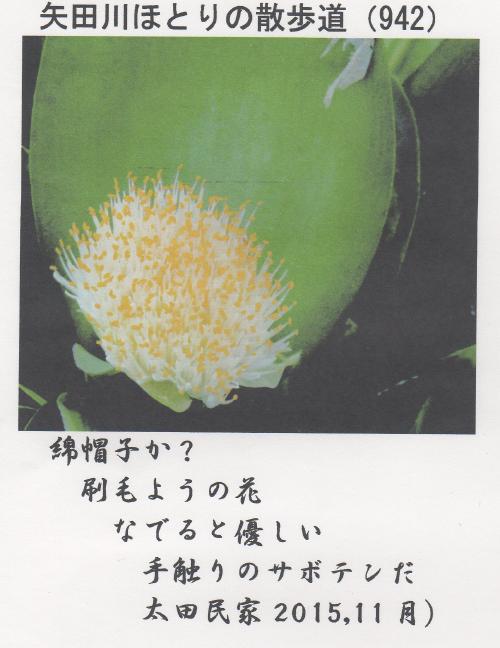 矢田川ほとりの散歩道（942）
綿帽子か？
刷毛ようの花
なでると優しい
手触りのサボテンだ
太田民家 2015,11月）